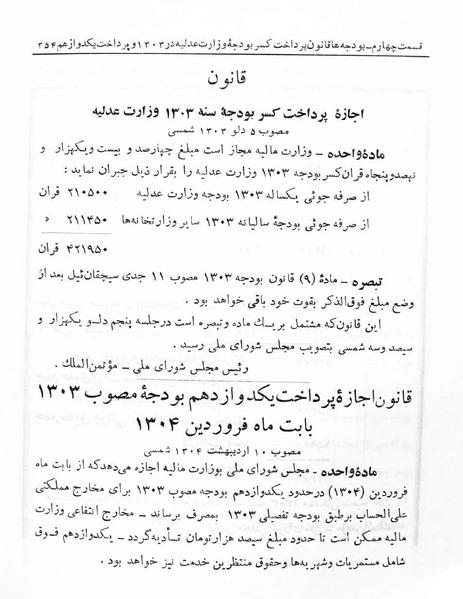 قسمت چهارم ـ بودجه‌ها قانون پرداخت کسر بودجهٔ وزارت عدلیه در ۱۳۰۳ و پرداخت یکدوازدهم ۳۵۴
قانون
اجازهٔ پرداخت کسر بودجهٔ سنه ۱۳۰۳ وزارت عدلیه
مصوب ۵ دلو ۱۳۰۳ شمسی
مادهٔ واحده ـ وزارت مالیه مجاز است مبلغ چهارصد و بیست ویکهزار و
نهصدوپنجاه قران کسر بودجه ۱۳۰۳ وزارت عدلیه را بقرار ذیل جبران نماید :
از صرفه جوئی یکساله ۱۳۰۳ بودجه وزارت عدلیه ۲۱۰۵۰۰ قران
از صرفه جوئی بودجهٔ سالیانه ۱۳۰۳ سایر وزارتخانه‌ها ۲۱۱۴۵۰ «
۴۲۱۹۵۰ قران
تبصره ـ مادهٔ (۹) قانون بودجه ۱۳۰۳ مصوب ۱۱ جدی سیچقان‌ئیل بعد از
وضع مبلغ فوق‌الذکر بقوت خود باقی خواهد بود .
این قانون‌که مشتمل بریك ماده وتبصره است درجلسه پنجم دلو یکهزار و
سیصد وسه شمسی بتصویب مجلس شورای ملی رسید .
رئیس مجلس شورای ملی ـ مؤتمن‌الملك .
قانون اجازهٔ پرداخت یکدوازدهم بودجهٔ مصوب ۱۳۰۳
بابت ماه فروردین ۱۳۰۴
مصوب ۱۰ اردیبهشت ۱۳۰۴ شمسی
مادهٔ واحده ـ مجلس شورای ملی بوزارت مالیه اجازه می‌دهدکه از بابت ماه
فروردین (۱۳۰۴) درحدود یکدوازدهم بودجه مصوب ۱۳۰۳ برای مخارج مملکتی
علی‌الحساب برطبق بودجه تفصیلی ۱۳۰۳ بمصرف برساند ـ مخارج انتفاعی وزارت
مالیه ممکن است تا حدود مبلغ سیصد هزارتومان تأدیه‌گردد ـ یکدوازدهم فوق
شامل مستمریات وشهریه‌ها وحقوق منتظرین خدمت نیز خواهد بود .